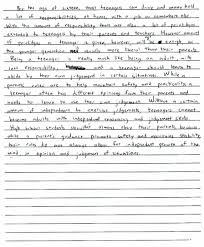 By the age of sixteen, most teenagers can drive and many hold
a lot of responsibilities, at home, with a job or somewhere else.
With the amount of responsibility there are also a lot of privileges
extended to teenagers by their parents and teachers. However amount
of privileges a teenager is given, however, will except on
the younger generation usually more liberal than their parents.
Being a teenager is nearly much like being an adult, with
responsibilities, and a teenager should learn to
abide by their own judgement in certain situations. While a
parents rules are to help maintain safety and practicality, a
teenager often has different opinions from their parents and
needs to learn to use their own judgement. Without a certain
amount of independence to exercise judgements, teenagers cannot
become adults with independent reasoning and judgement skills.
High school students should always obey their parents because
while a parent's guidance promotes safety and maintains stability
their rules do not always allow for independent growth of the
mind in opinion and judgement of situations.